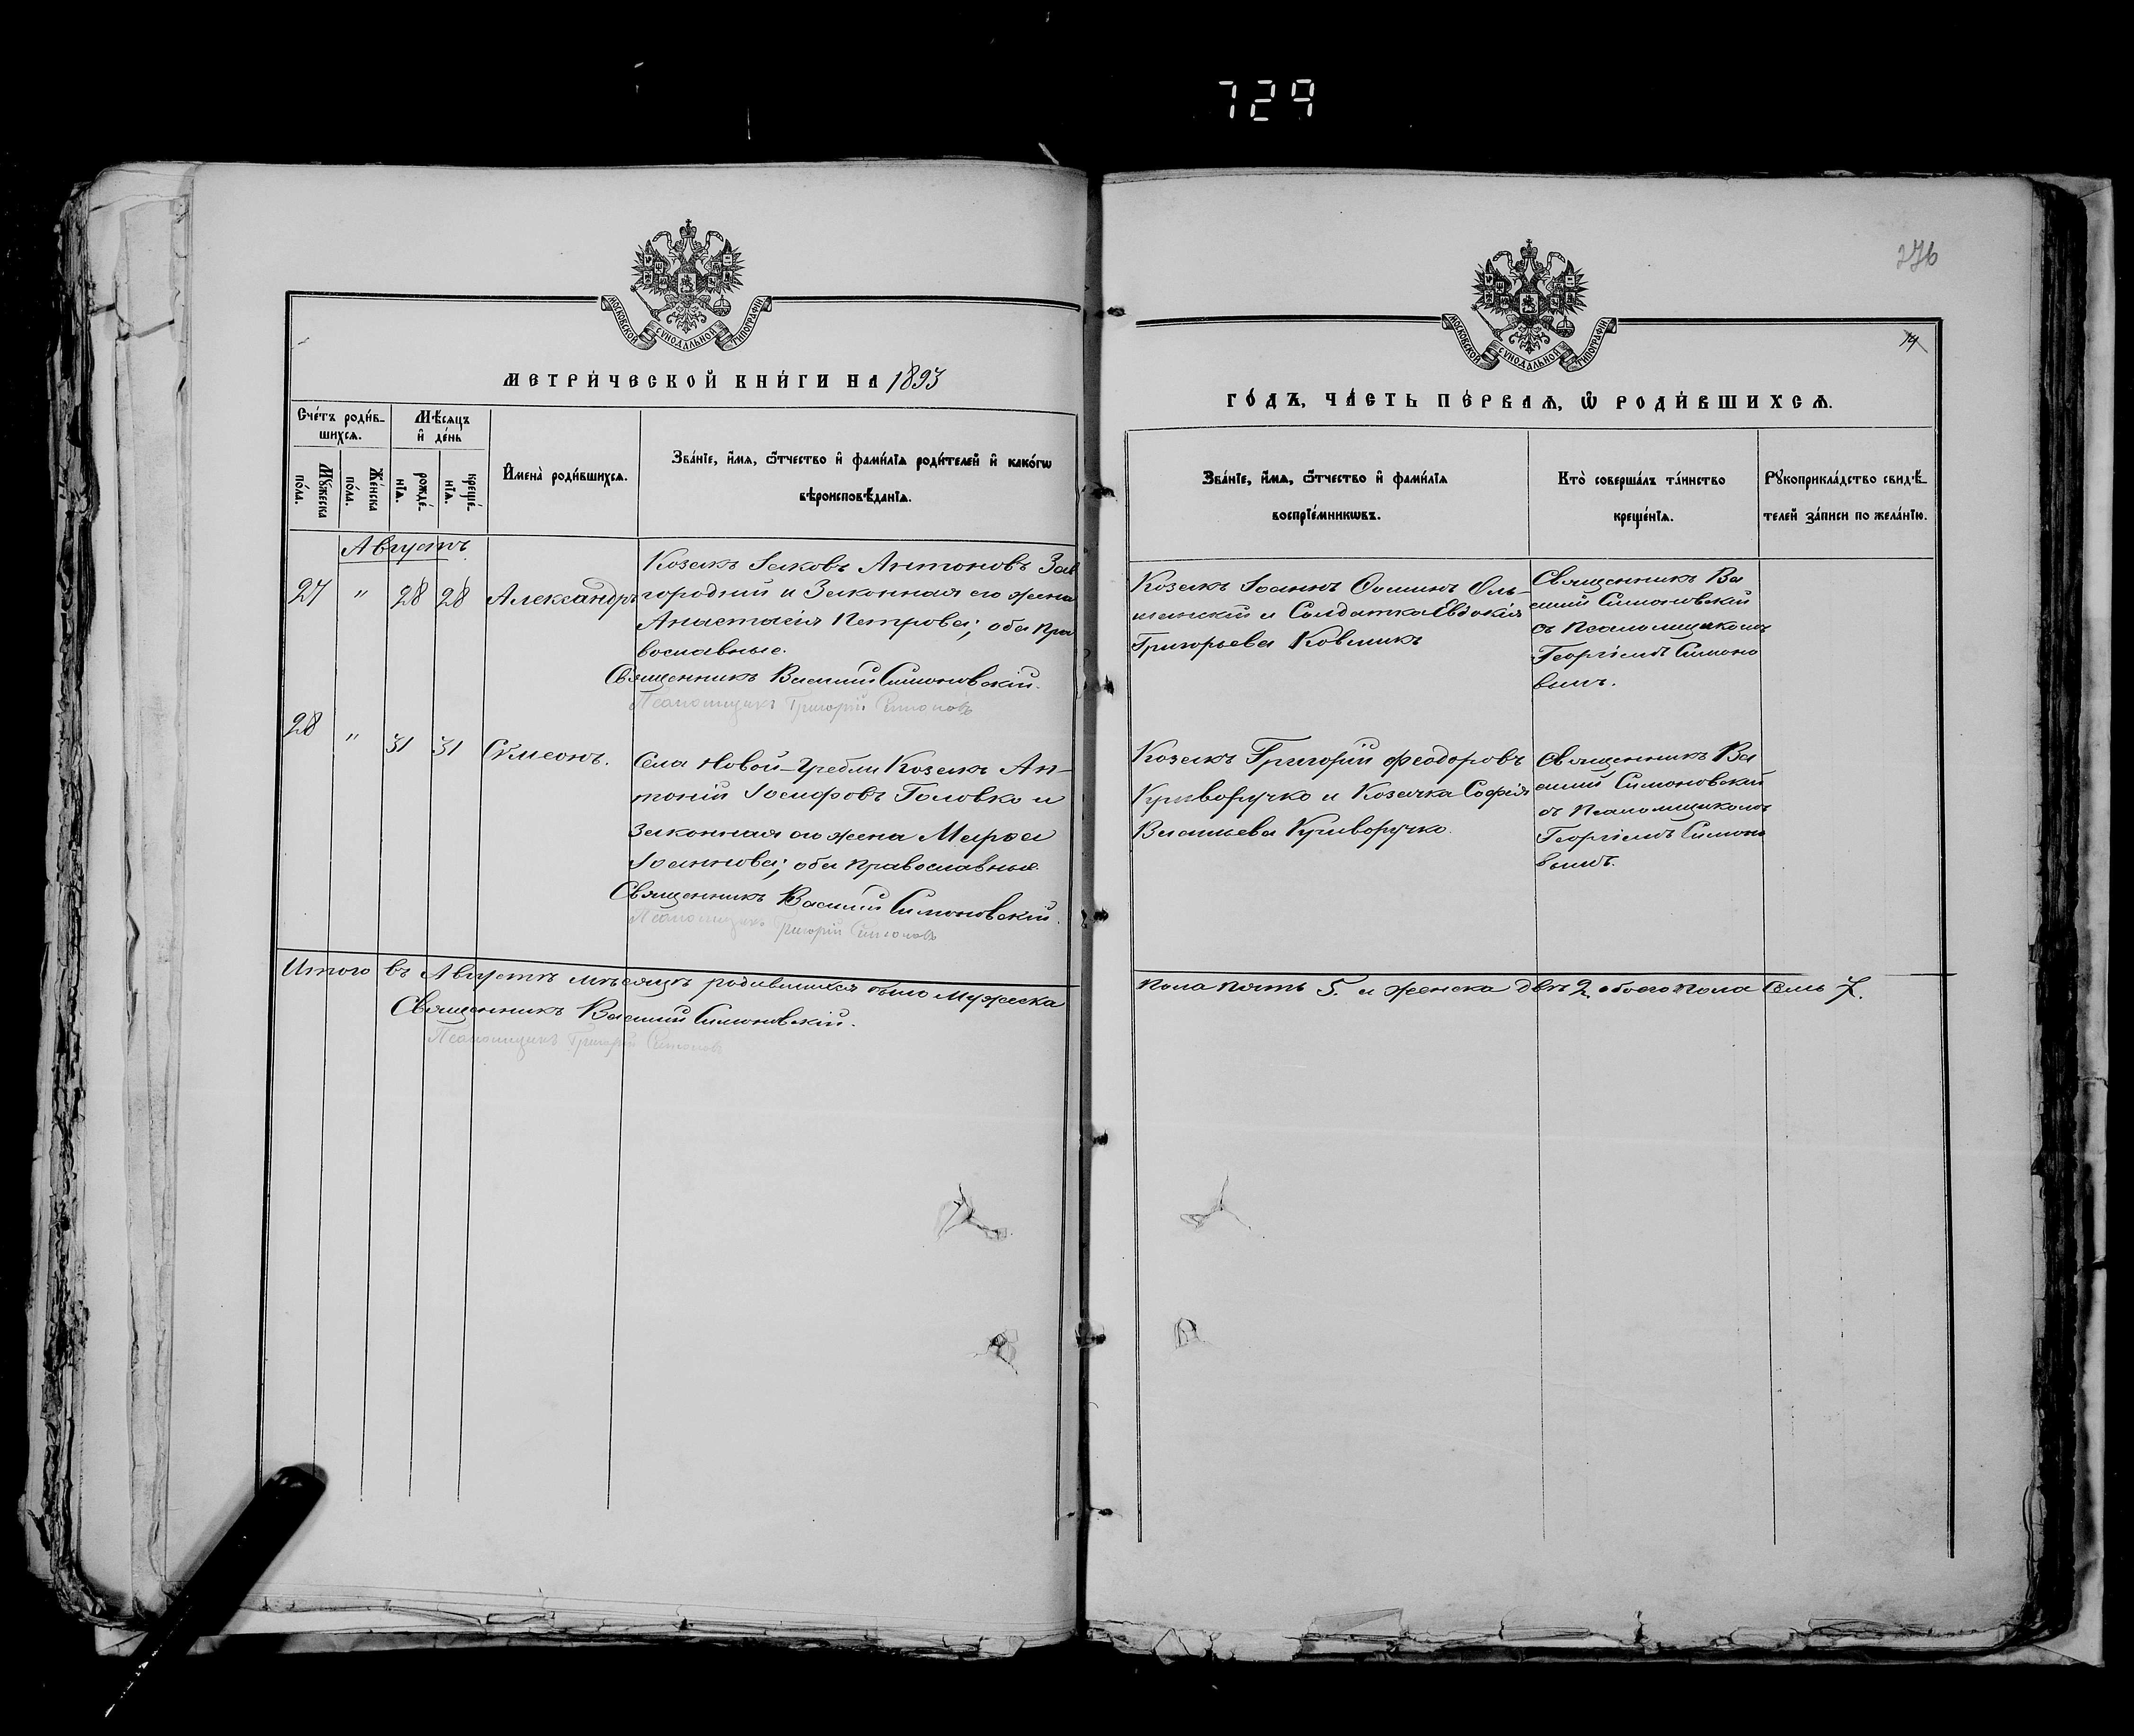 729
276
14
МОСКОВСКОЙ СѴНОДАЛЬНОЙ ТИПОГРАФІИ
МЕТРИ́ЧЕСКОЙ КНИ́ГИ НА 1893
Сче́тъ роди́в-
шихсѧ.
Мѣ́сѧцъ
и҆ де́нь
Мꙋ́жеска
по́ла.
Же́нска
по́ла.
рожде́-
нїѧ.
креще́-
нїѧ.
И҆мена̀ роди́вшихсѧ.
Зва́нїе, и҆́мѧ, ѻ҆́тчество и҆ фами́лїѧ роди́телей и҆ како́гѡ
вѣроисповѣ́данїѧ.
Августъ.
27 " 28 28 Александръ
Козакъ Іаковъ Антоновъ Зав
городній и Законная его жена
Анастасія Петрова; оба пра
вославные.
Священникъ Василий Симоновскій.
Псаломщикъ Григорій Симоновъ
28 " 31 31 Сѵмеонъ.
Села Новой-Гребли Козакъ Ан-
тоній Іосифовъ Головко и
Законная его жена Марѳа
Іоаннова; оба православные.
Священникъ Василий Симоновскій.
Псаломщикъ Григорій Симоновъ
Итого въ Августѣ мѣсяцѣ родившихся было мужеска
Священникъ Василий Симоновскій.
Псаломщикъ Григорій Симоновъ
МОСКОВСКОЙ СѴНОДАЛЬНОЙ ТИПОГРАФІИ
ГО́ДЪ, ЧА́СТЬ ПЕ́РВАѦ, Ѡ҆ РОДИ́ВШИХСѦ.
Зва́нїе, и҆́мѧ, ѻ҆́тчество и҆ фами́лїѧ
воспрїе́мникѡвъ.
Кто̀ соверша́лъ та́инство
креще́нїѧ.
Рꙋкоприкла́дство свидѣ́-
телей за́писи по жела́нїю.
Козакъ Іоаннъ Ѳоминъ Оль-
шанскій и Солдатка Евдокія
Григорьева Ковмикъ
Священникъ Ва
силій Симоновскій
съ Псаломщикомъ
Георгіемъ Симоно
вымъ.
Козакъ Григорій Феодоровъ
Криворучко и Козачка Софія
Васильева Криворучко.
Священникъ Ва
силій Симоновскій
съ Псаломщикомъ
Георгіемъ Симоно
вымъ.
пола пять 5. и женска двѣ 2. обоего пола семь 7.